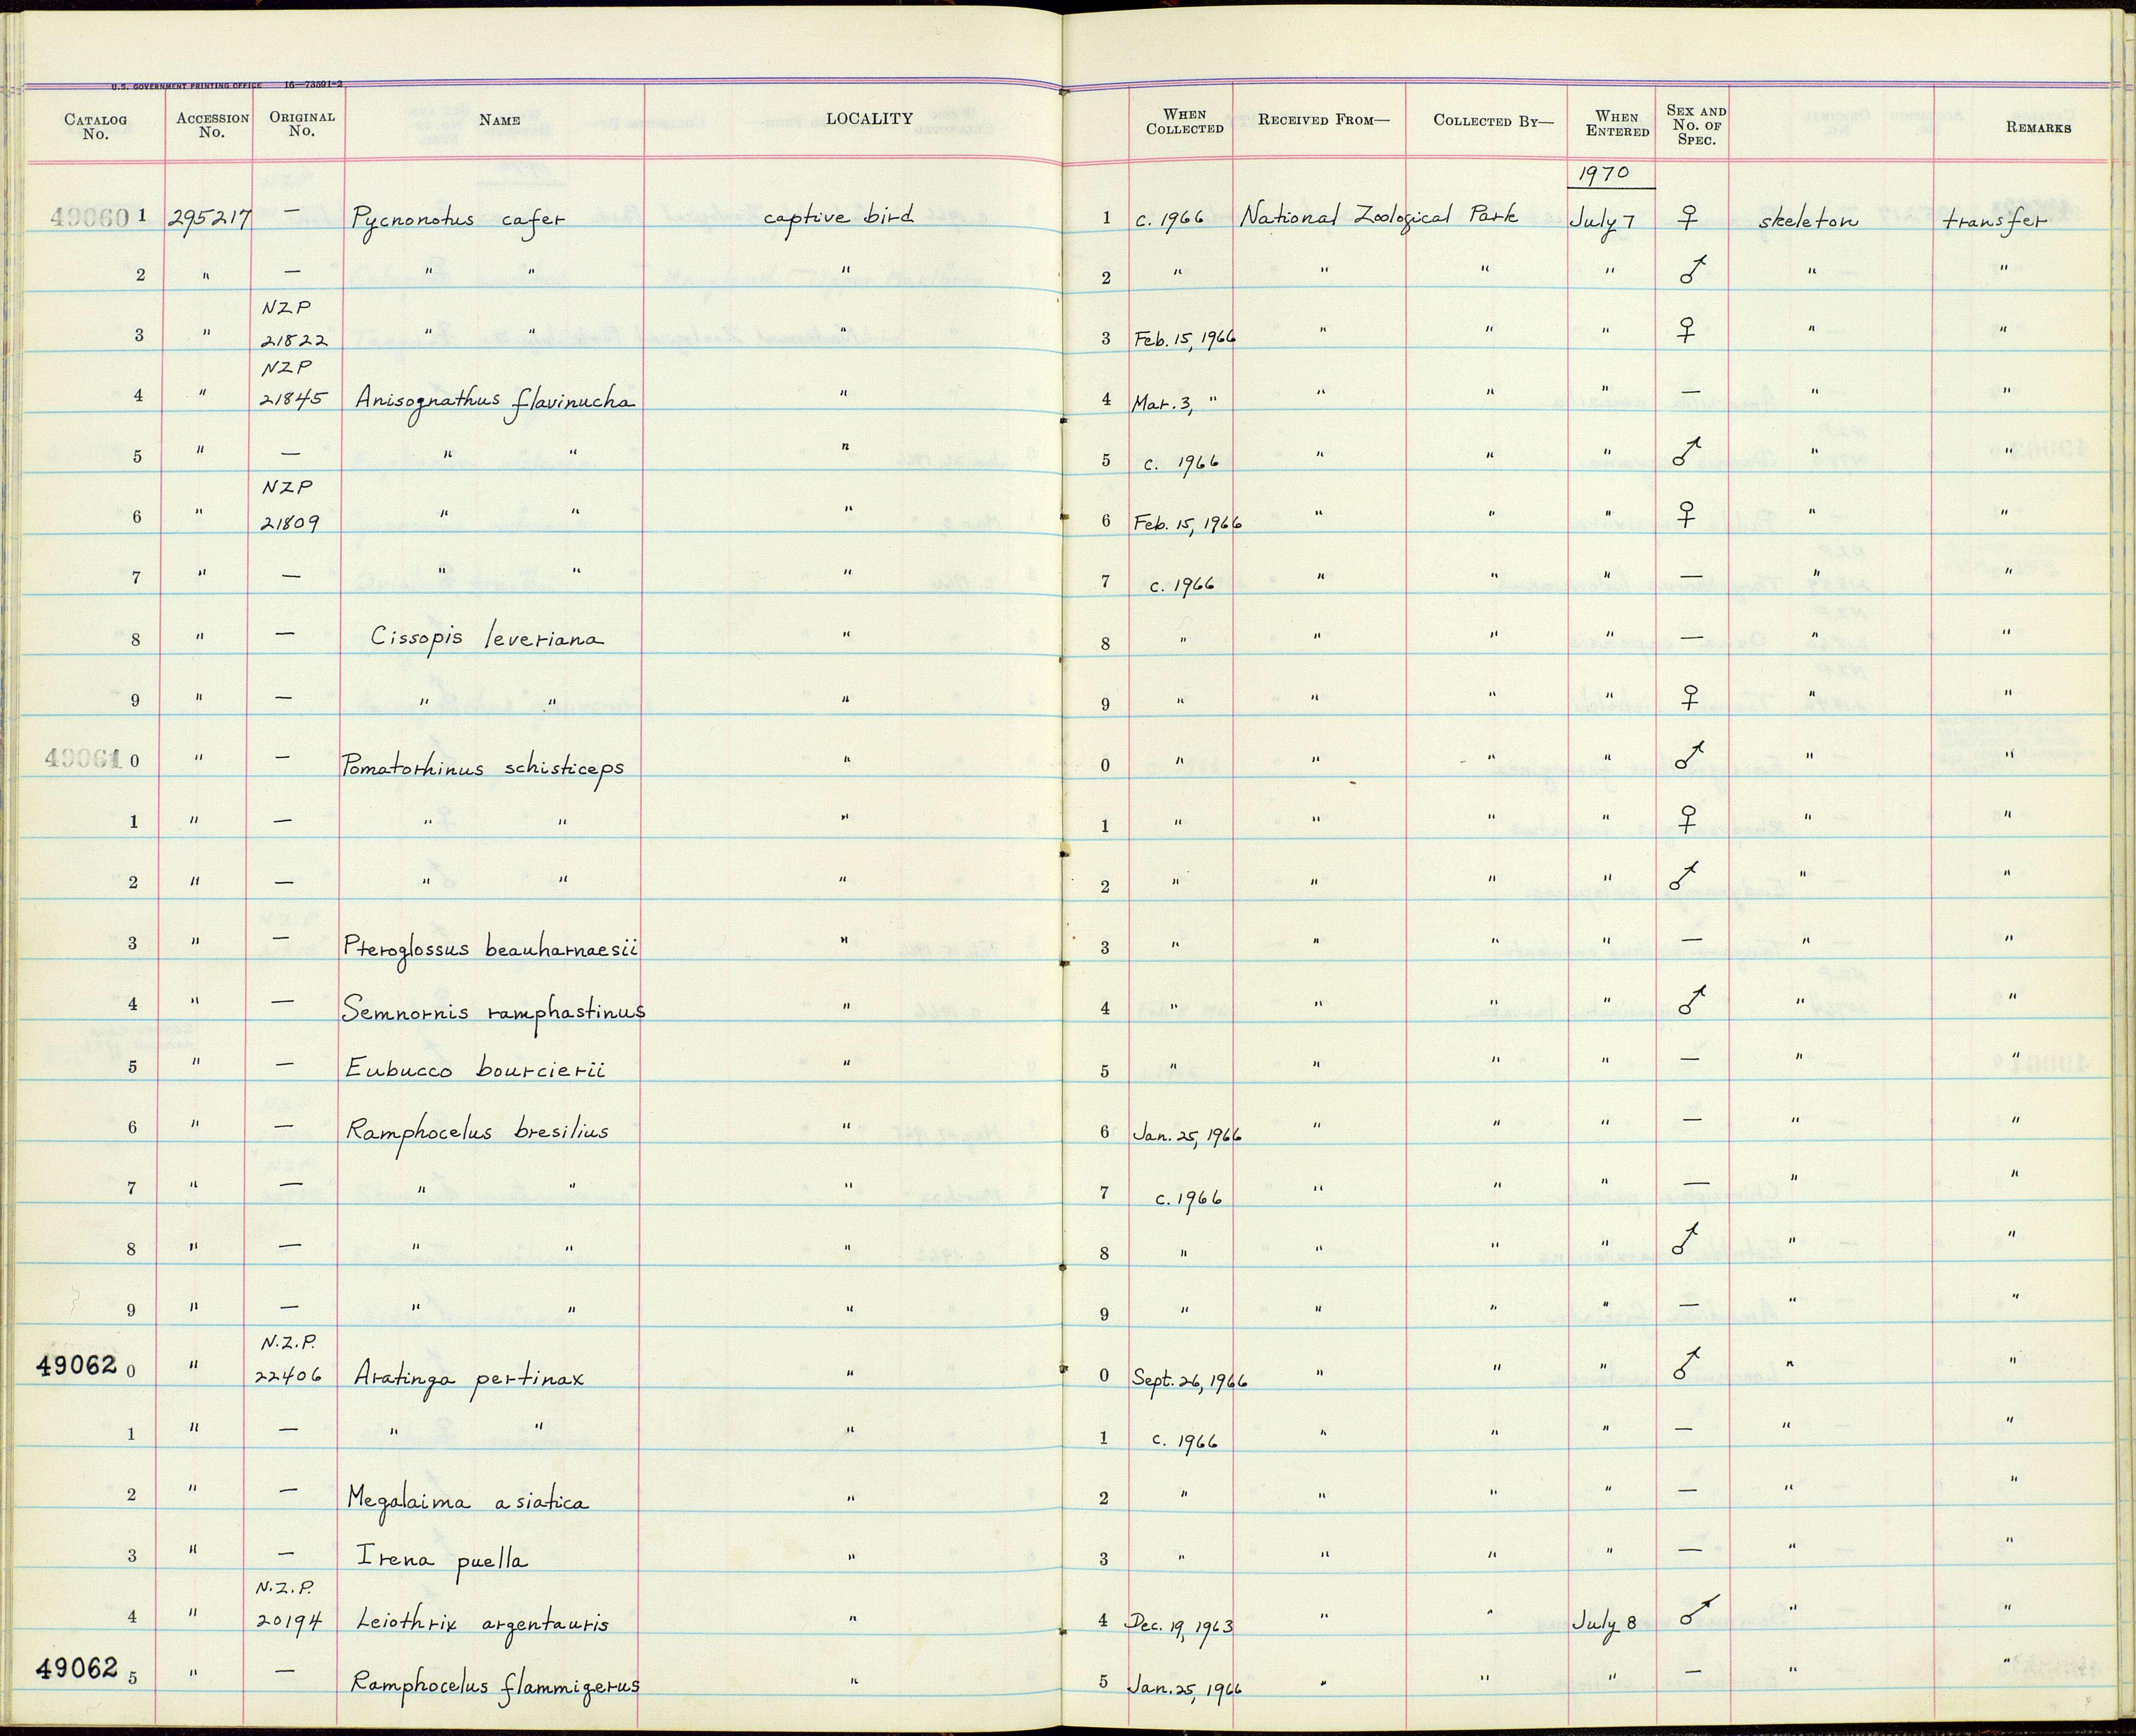 U.S. GOVERNMENT PRINTING OFFICE 16—73591-2
CATALOG No. ACCESSION No. ORIGINAL No. NAME LOCALITY WHEN COLLECTED RECEIVED FROM— COLLECTED BY— WHEN ENTERED SEX AND No. OF SPEC. REMARKS
1970
49060 1 295217 — Pycnonotus cafer captive bird 1 c. 1966 National Zoological Park July 7 ♀ skeleton transfer
2 " — " " " 2 " " " " ♂ " "
NZP
3 " 21822 " " " 3 Feb. 15, 1966 " " " ♀ " "
NZP
4 " 21845 Anisognathus flavinucha " 4 Mar. 3, " " " " — " "
5 " — " " " 5 c. 1966 " " " ♂ " "
NZP
6 " 21809 " " " 6 Feb. 15, 1966 " " " ♀ " "
7 " — " " " 7 c. 1966 " " " — " "
8 " — Cissopis leveriana " 8 " " " " — " "
9 " — " " " 9 " " " " ♀ " "
49061 0 " — Pomatorhinus schisticeps " 0 " " " " ♂ " "
1 " — " " " 1 " " " " ♀ " "
2 " — " " " 2 " " " " ♂ " "
3 " — Pteroglossus beauharnaesii " 3 " " " " — " "
4 " — Semnornis ramphastinus " 4 " " " " ♂ " "
5 " — Eubucco bourcierii " 5 " " " " — " "
6 " — Ramphocelus bresilius " 6 Jan. 25, 1966 " " " — " "
7 " — " " " 7 c. 1966 " " " — " "
8 " — " " " 8 " " " " ♂ " "
9 " — " " " 9 " " " " — " "
N.Z.P.
49062 0 " 22406 Aratinga pertinax " 0 Sept. 26, 1966 " " " ♂ " "
1 " — " " " 1 c. 1966 " " " — " "
2 " — Megalaima asiatica " 2 " " " " — " "
3 " — Irena puella " 3 " " " " — " "
N.Z.P.
4 " 20194 Leiothrix argentauris " 4 Dec. 19, 1963 " " July 8 ♂ " "
49062 5 " — Ramphocelus flammigerus " 5 Jan. 25, 1966 " " " — " "